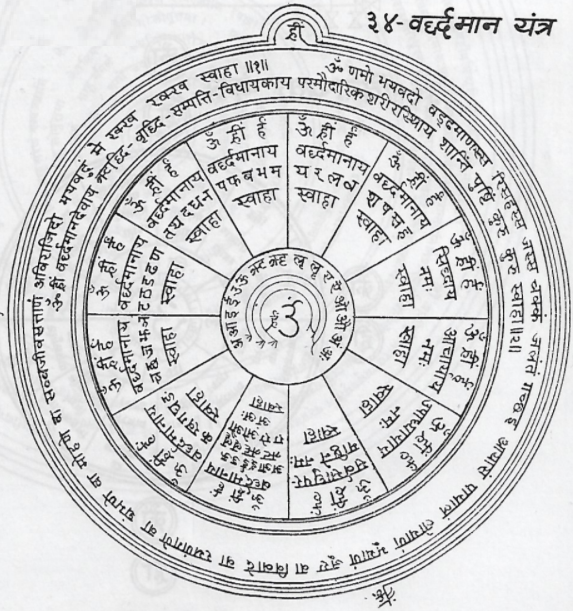 ३४- वर्द्धमान यंत्र
ह्रीं
ॐ णमो भयवदो वड्ढमाणस्स रिसहस्स जस्स चक्कं जलंतं गच्छइ आयासं पायालं लोयाणं भूयाणं जूए वा विवादे वा रणंगणे वा थंभणे वा मोहणे वा सव्वजीवसत्ताणं अपराजिदो भयवदु मे रक्ख रक्ख स्वाहा ॥१॥
ॐ ह्रीं वर्द्धमानदेवाय
वृद्धि-सम्पत्ति-विधायकाय परमौदारिक शरीरस्थिाय शान्तिं पुष्टिं कुरु कुरु स्वाहा ॥२॥
ॐ ह्रीं हँ
वर्द्धमानाय
य र ल व
स्वाहा
ॐ ह्रीं हँ
वर्द्धमानाय
श ष स ह
स्वाहा
ॐ ह्रीं हँ
सिद्धाय
नमः
स्वाहा
ॐ ह्रीं हँ
आचार्याय
नमः
स्वाहा
ॐ ह्रीं हँ
उपाध्यायाय
नमः
स्वाहा
ॐ ह्रीं
सर्वसाधुपर
नमः
स्वाहा
ॐ ह्रीं हँ
वर्द्धमानाय
अ आ इ ई उ ऊ
ए ऐ ओ औ
अं अः
स्वाहा
ॐ ह्रीं हँ
वर्द्धमानाय
क ख ग घ ङ
स्वाहा
ॐ ह्रीं हँ
वर्द्धमानाय
च छ ज झ ञ
स्वाहा
ॐ ह्रीं हँ
वर्द्धमानाय
ट ठ ड ढ ण
स्वाहा
ॐ ह्रीं हँ
वर्द्धमानाय
त थ द ध न
स्वाहा
ॐ ह्रीं हँ
वर्द्धमानाय
प फ ब भ म
स्वाहा
अ आ इ ई उ ऊ ऋ ॠ लृ लॄ ए ऐ ओ औ अं अः
ॐ